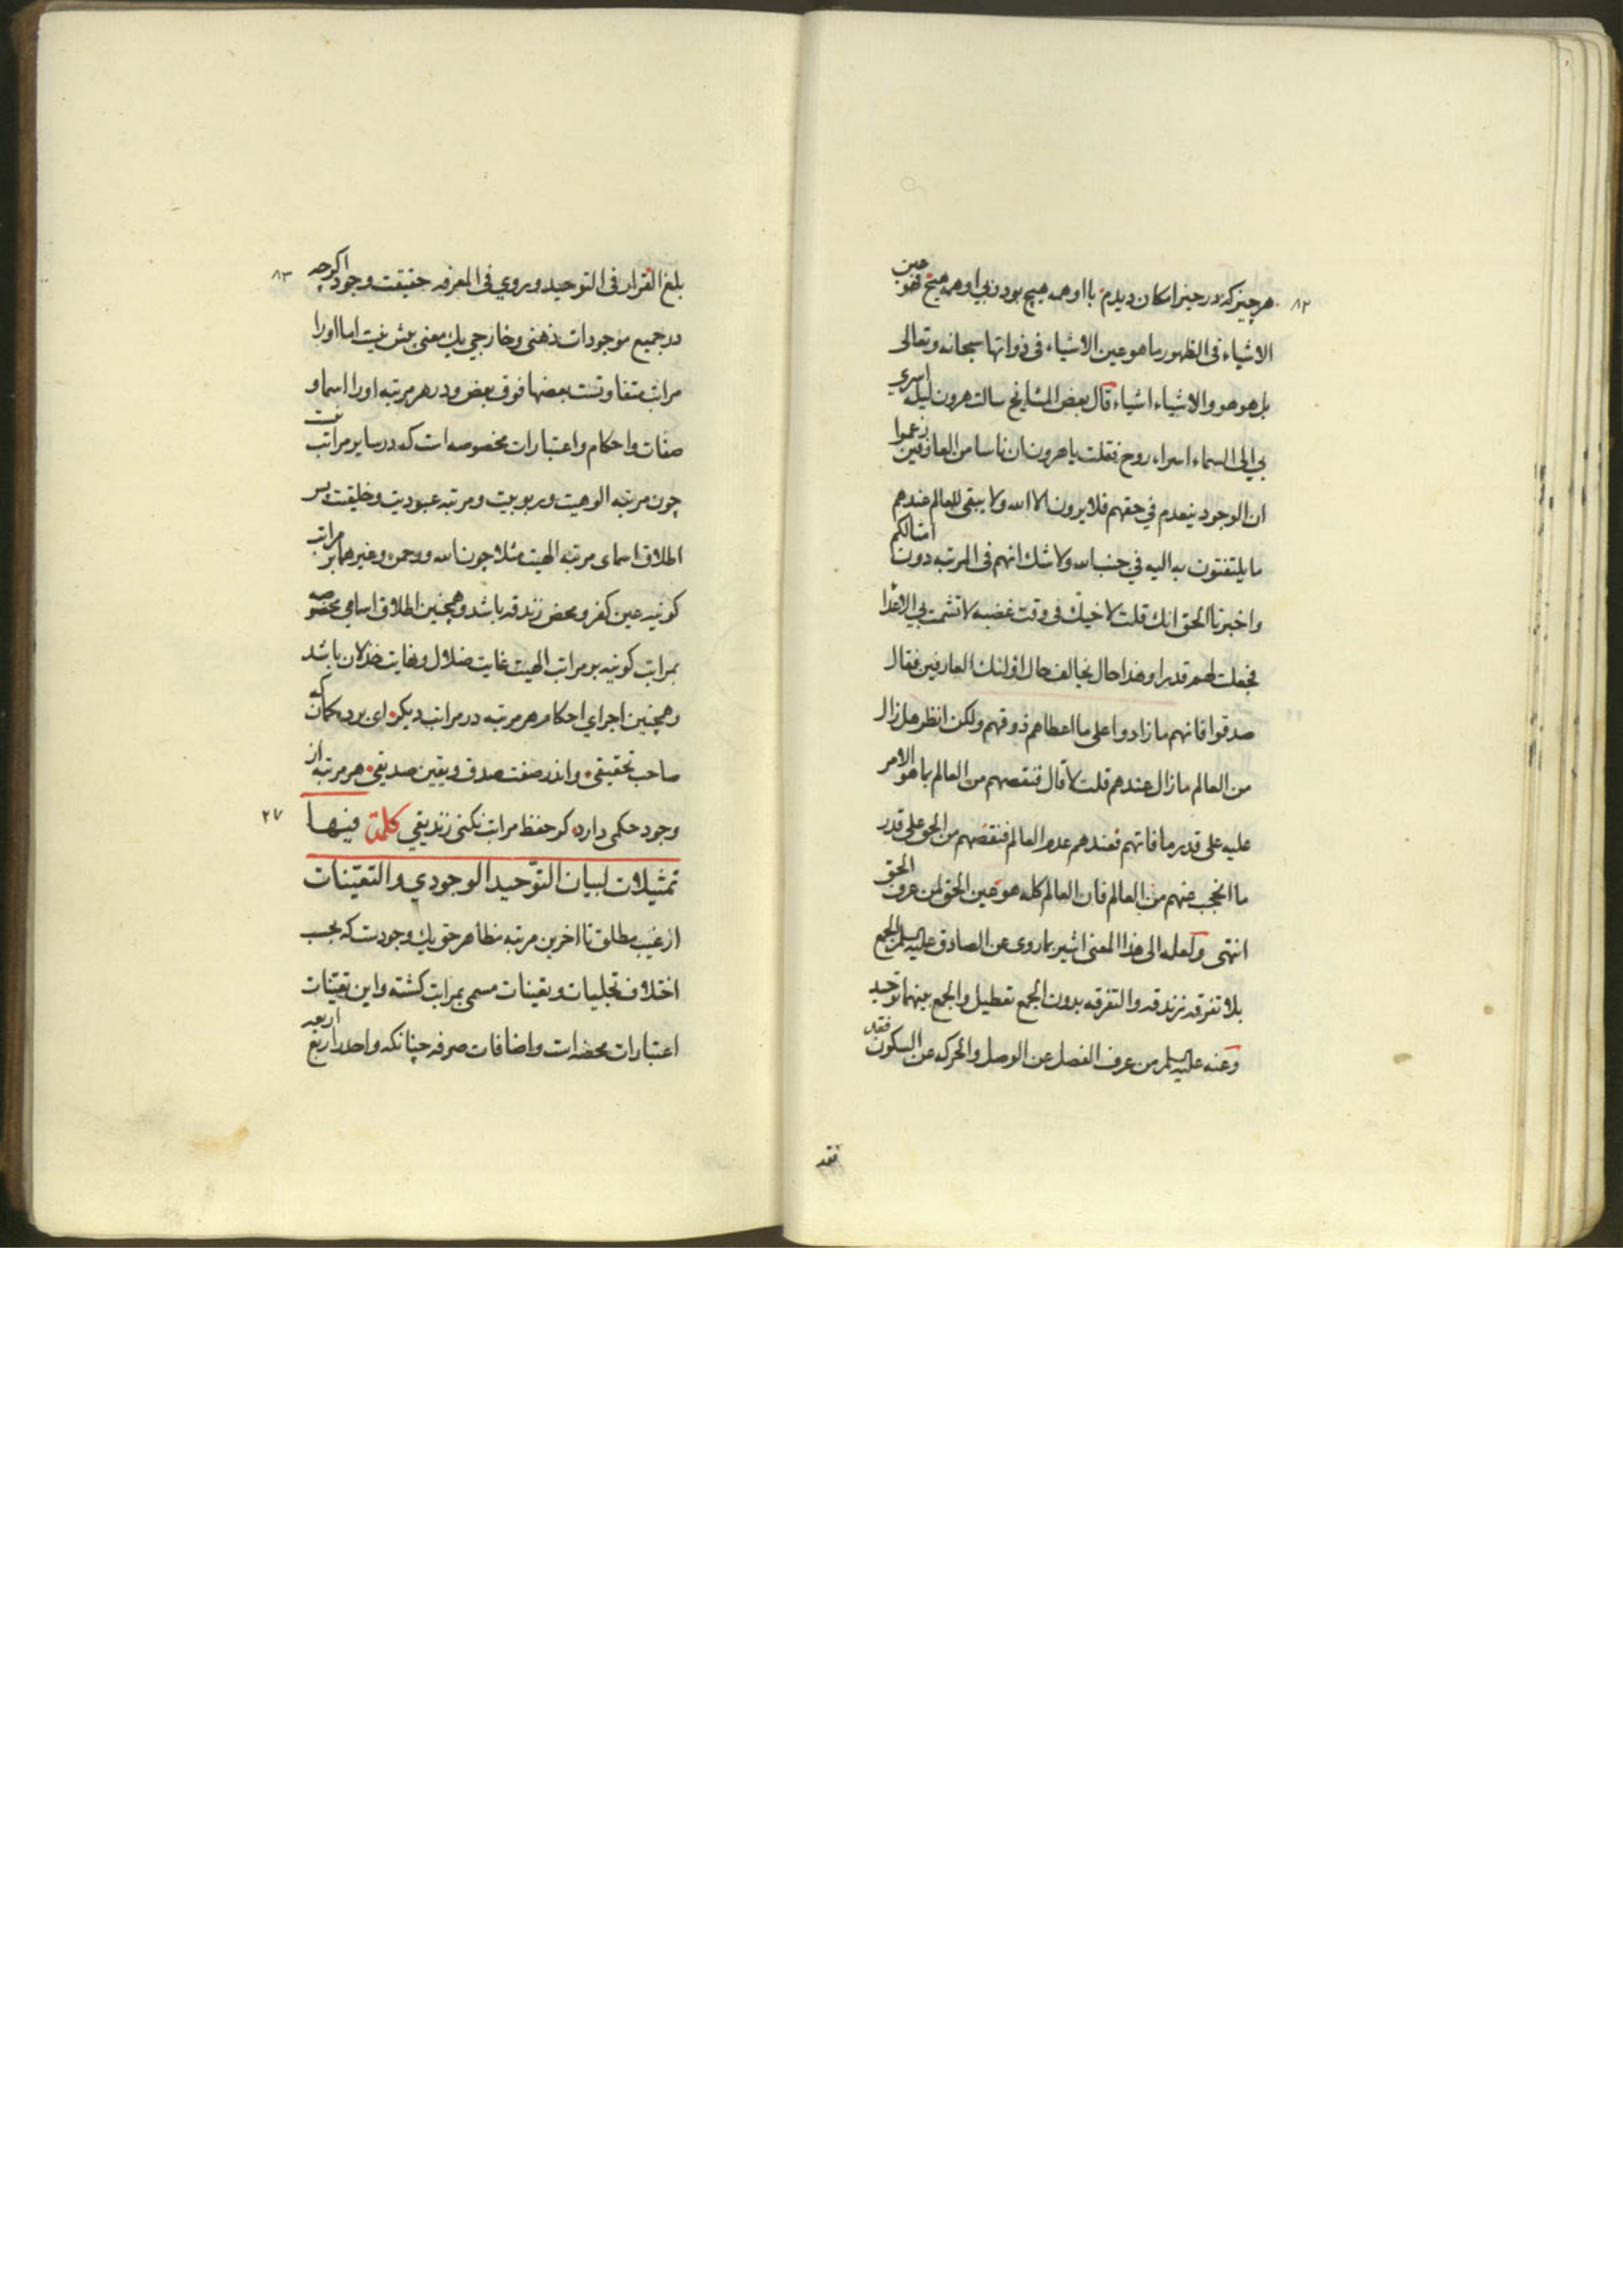 ۸۲
هرچیز که در حیز امکان دیدم با او همه هیچ بود و بی او همه هیچ فهو عین
الاشیاء فی الظهور ما هو عین الاشیاء فی ذواتها سبحانه وتعالی
بل هو هو والاشیاء اشیاء قال بعض المشایخ سالت هرون لیله اسری
بی الی السماء اسراء روح فقلت یا هرون ان ناسا من العارفین زعموا
ان الوجود ینعدم فی حقهم فلا یرون الا الله ولا یبقی للعالم عندهم
ما یلتفتون به الیه فی جنب الله ولا شك انهم فی المرتبه دون امثالکم
واخبرنا الحق انك قلت لاخیك فی وقت غضبه لا تشمت بی الاعدا
فجعلت لهم قدرا وهذا حال یخالف حال اولئك العارفین فقال
صدقوا فانهم ما زادوا علی ما اعطاهم ذوقهم ولکن انظر هل زال
من العالم ما زال عندهم قلت لا قال فنقصهم من العالم بما هو الامر
علیه علی قدر ما فاتهم فعندهم عدم العالم فنقصهم من الحق علی قدر
ما انحجب عنهم من العالم فان العالم کله هو عین الحق لمن عرف الحق
انتهی ولعله الی هذا المعنی اشیر بما روی عن الصادق علیه السلم الجمع
بلا تفرقه زندقه والتفرقه بدون الجمع تعطیل والجمع بینهما توحید
وعنه علیه السلم من عرف الفصل عن الوصل والحرکه عن السکون فقد
فقد
۸۳
بلغ القرار فی التوحید وروی فی المعرفه حقیقت وجود اکرچه
در جمیع موجودات ذهنی وخارجی یك معنی بیش نیست اما اورا
مراتب متفاوتست بعضها فوق بعض ودر هر مرتبه اورا اسما و
صفات واحکام واعتبارات مخصوصه است که در سایر مراتب نیست
چون مرتبه الوهیت وربوبیت ومرتبه عبودیت وخلیقت پس
اطلاق اسمای مرتبه الهیت مثلا چون الله ورحمن وغیرهما بر مراتب
کونیه عین کفر ومحض زندقه باشد وهمچنین اطلاق اسامی مخصوصه
بمراتب کونیه بر مراتب الهیت غایت ضلال ونهایت خذلان باشد
وهمچنین اجرای احکام هر مرتبه در مراتب دیکر ای برده کمان که
صاحب تحقیقی واندر صفت صدق ویقین صدیقی هر مرتبه از
وجود حکمی دارد کر حفظ مراتب نکنی زندیقی کلمة فیها ۲۷
تمثیلات لبیان التوحید الوجودی والتعینات
از غیب مطلق تا اخرین مرتبه مظاهر حق یك وجودست که بحسب
اختلاف تجلیات وتعینات مسمی بمراتب کشته واین تعینات
اعتبارات محضه است واضافات صرفه چنانکه واحد را ربع اربعه